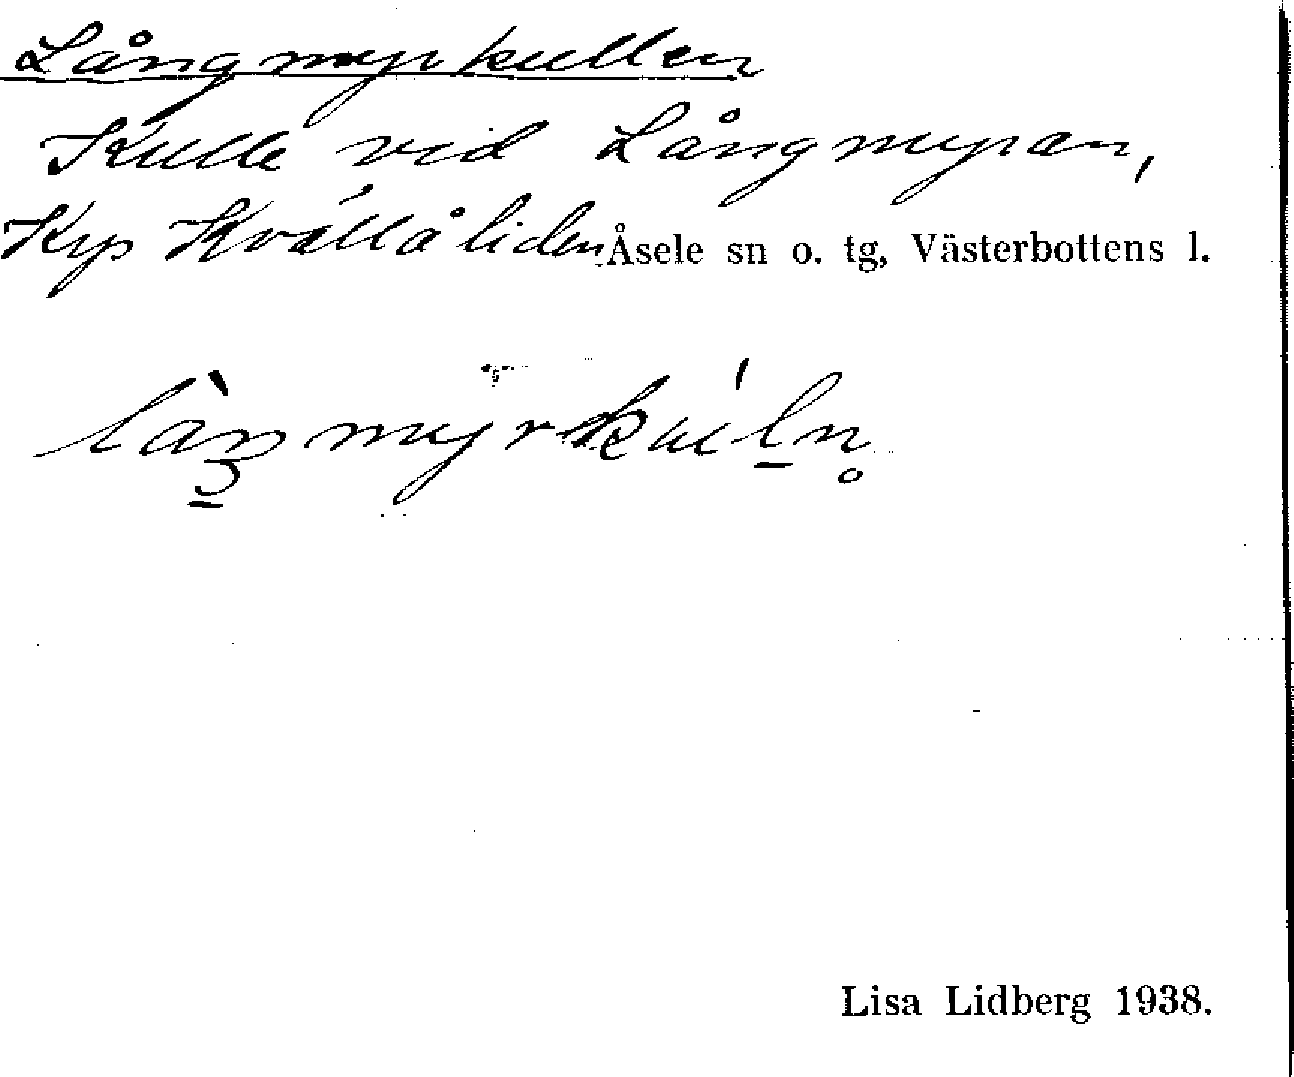 Långmyrkullen
Kulle vid Långmyran,
Kys Kvällåliden Åsele sn o. tg, Västerbottens l.
Lisa Lidberg 1938.